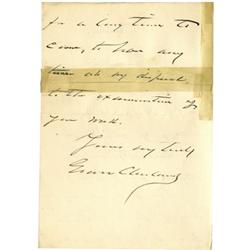 for a long time to
come, to have any
time at my disposal
to the examination of
your work.
Yours very truly
Grover Cleveland